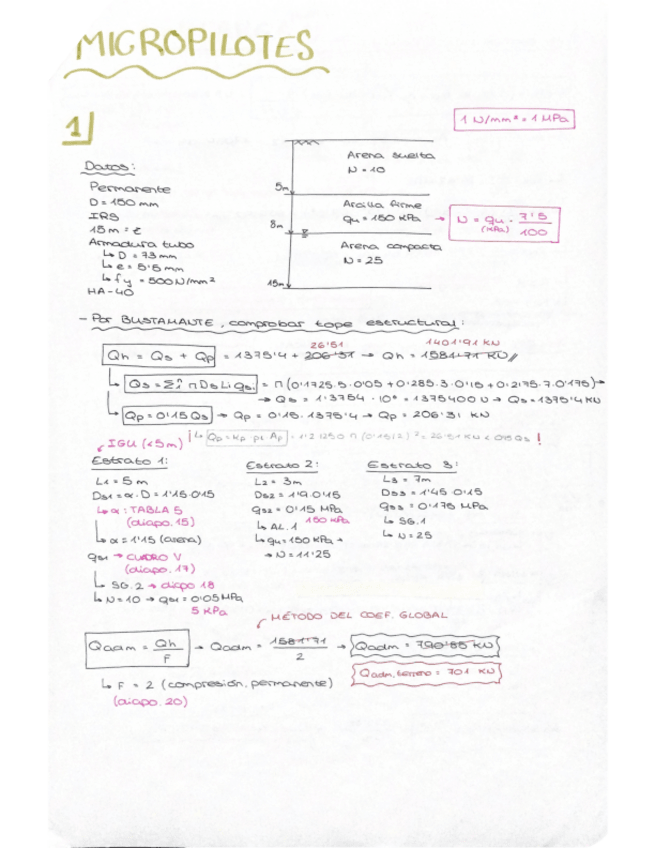 MICROPILOTES
1
1 N/mm² = 1 MPa
Datos:
Permanente
D = 150 mm
IRS
15 m = z
Armadura tubo
↳ D = 73 mm
↳ e = 5'5 mm
↳ fy = 500 N/mm²
HA-40
Arena suelta
N = 10
5m
Arcilla firme
qu = 150 KPa → N = qu · 7'5 / 100
(KPa)
8m
Arena compacta
N = 25
15m
- Por BUSTAMANTE, comprobar tope estructural:
26'51 1401'91 KN
Qh = Qs + Qp = 1375'4 + 206'31 → Qh = 1581'71 KN //
↳ Qs = Σ π Ds Li qs = π (0'1725·5·0'05 + 0'285·3·0'15 + 0'2175·7·0'175) →
→ Qs = 1'3754 · 10⁶ = 1375400 N → Qs = 1375'4 KN
↳ Qp = 0'15 Qs → Qp = 0'15 · 1375'4 → Qp = 206'31 KN
IGU (<5m)
¡ ↳ Qp = Kp · pl · Ap = 1'2·1250 π (0'15/2)² = 26'51 KN < 0'15 Qs !
Estrato 1:
L1 = 5 m
Ds1 = α · D = 1'15 · 0'15
↳ α: TABLA 5
(diapo. 15)
↳ α = 1'15 (arena)
qs1 → CUADRO V
(diapo. 17)
↳ SG. 2 → diapo 18
↳ N = 10 → qs1 = 0'05 MPa
5 KPa
Estrato 2:
L2 = 3m
Ds2 = 1'9 · 0'15
qs2 = 0'15 MPa
150 KPa
↳ AL. 1
↳ qu = 150 KPa →
→ N = 11'25
Estrato 3:
L3 = 7m
Ds3 = 1'45 · 0'15
qs3 = 0'175 MPa
↳ SG. 1
↳ N = 25
MÉTODO DEL COEF. GLOBAL
Qadm = Qh / F → Qadm = 1581'71 / 2 → Qadm = 790'85 KN
Qadm, terreno = 701 KN
↳ F = 2 (compresión, permanente)
(diapo. 20)